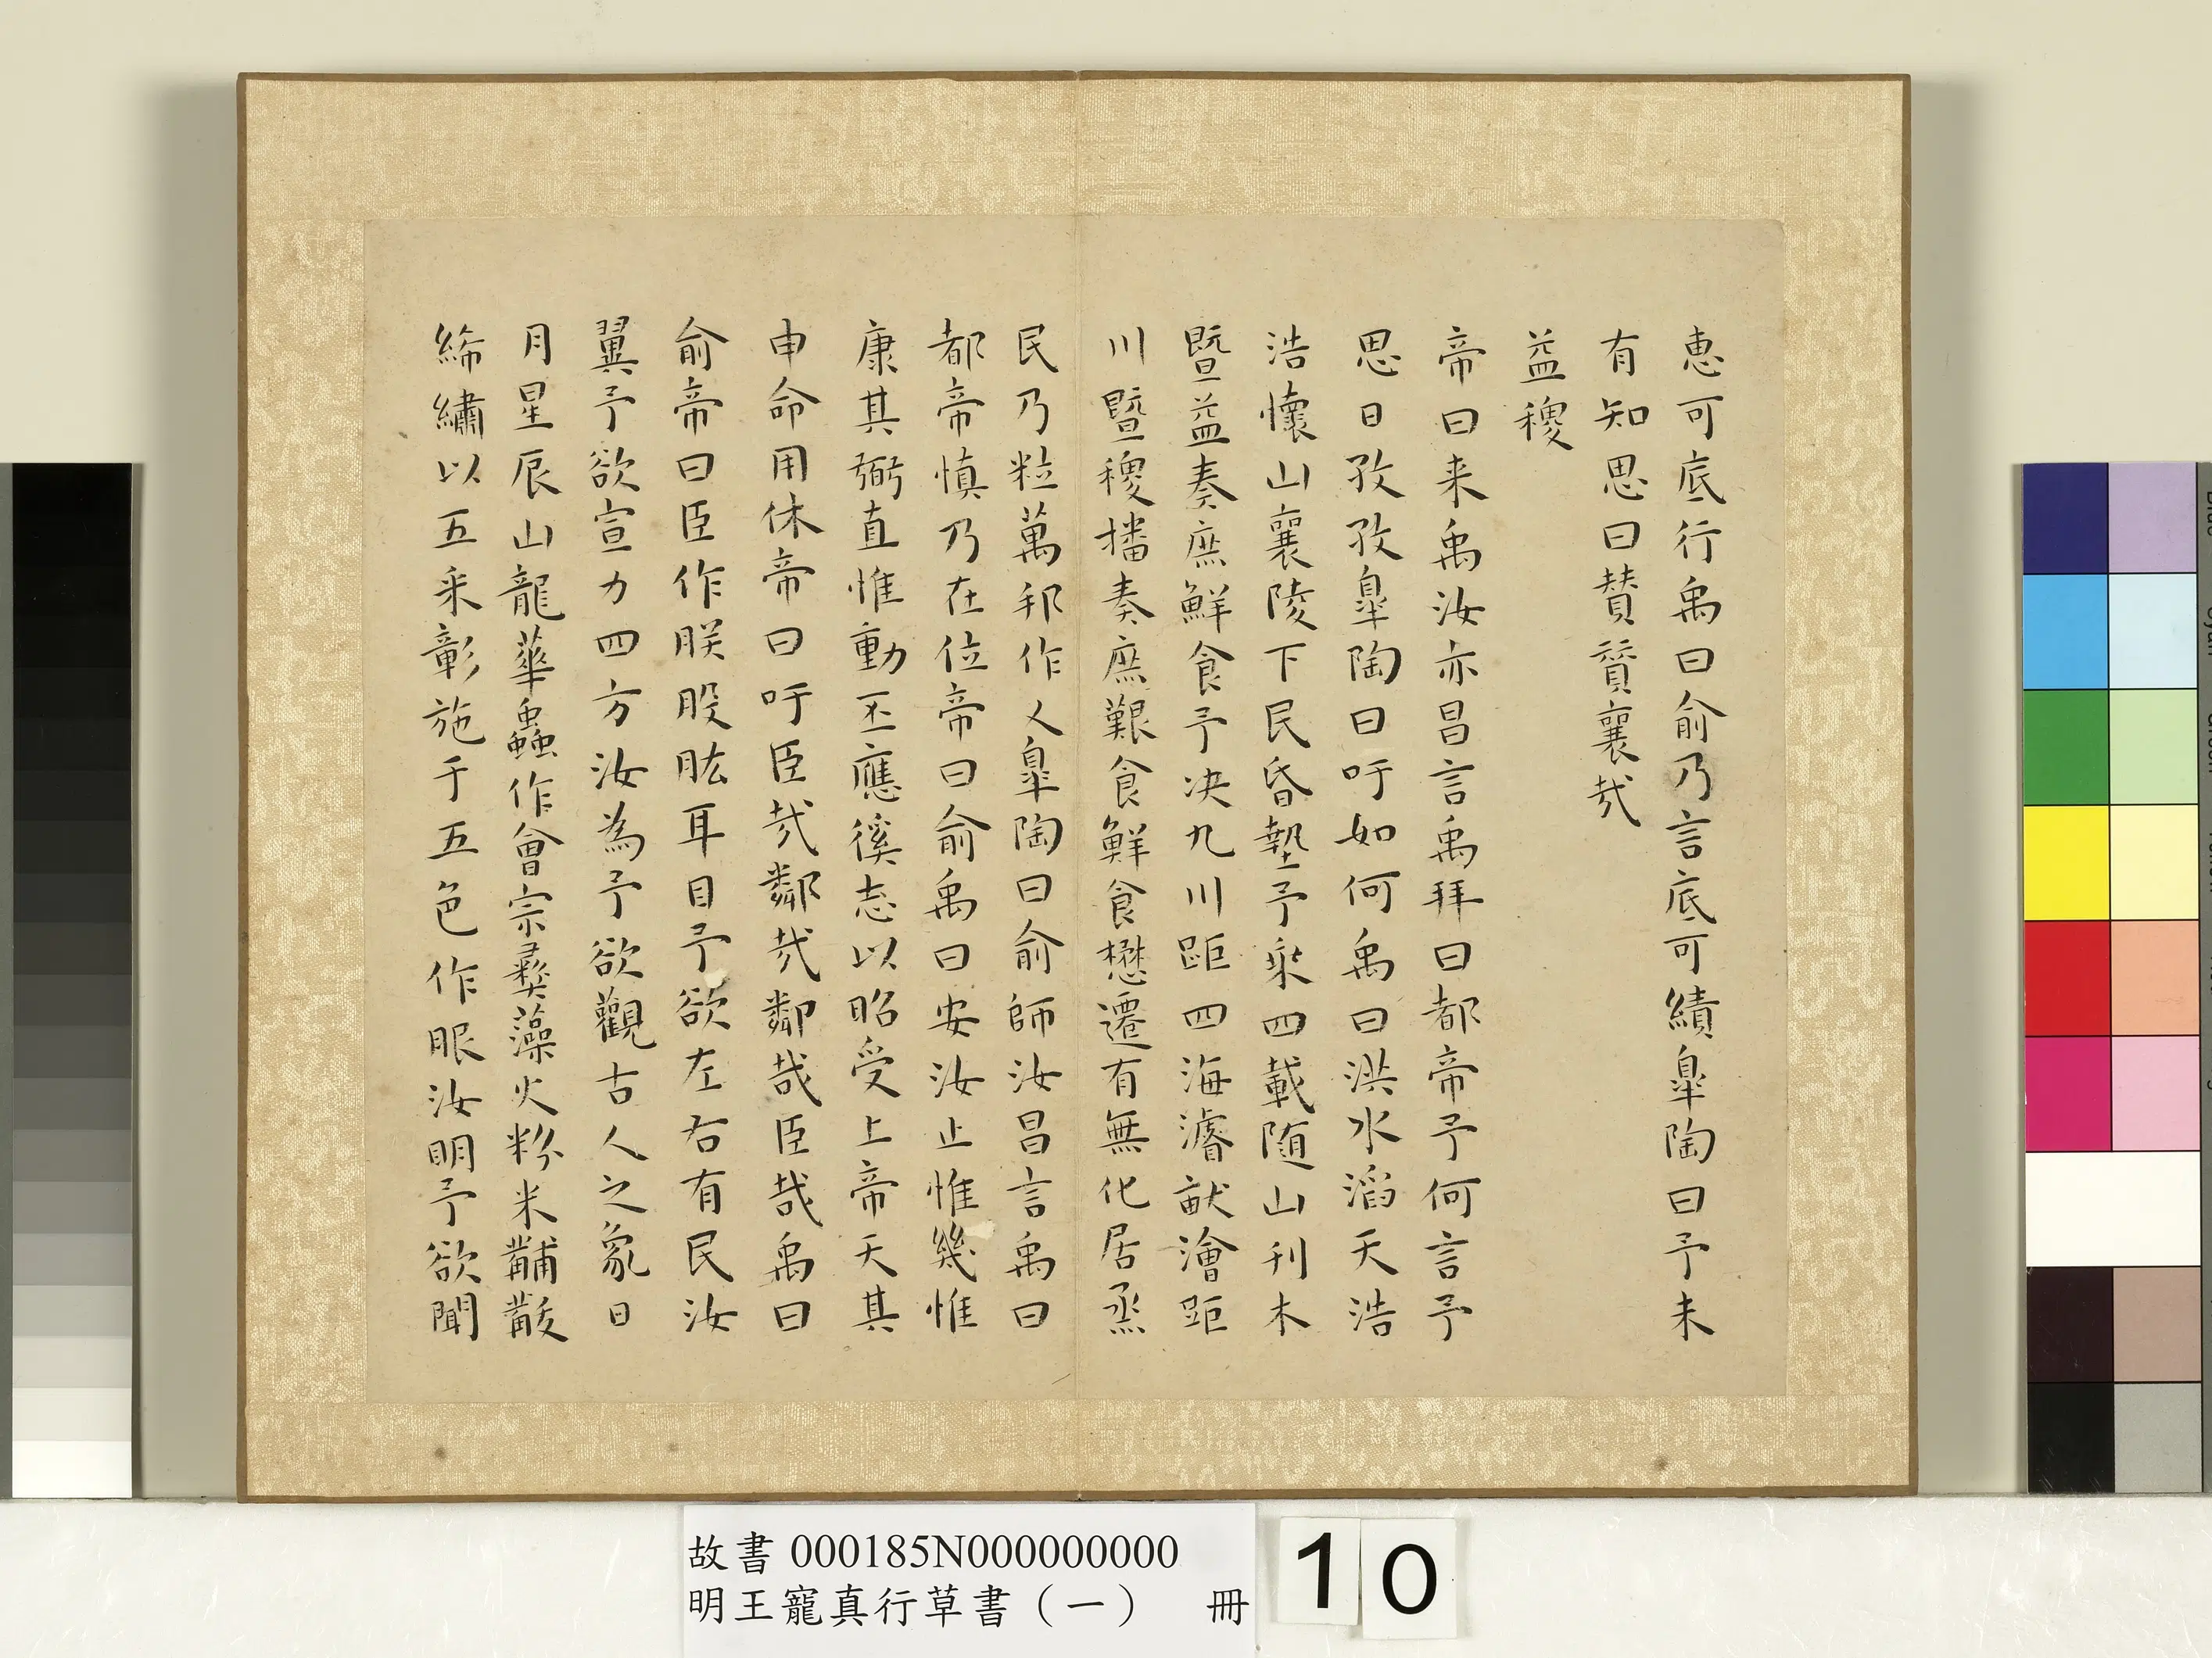 惠可底行禹曰俞乃言底可績皐陶曰予未
有知思曰賛賛襄哉
益稷
帝曰来禹汝亦昌言禹拜曰都帝予何言予
思日孜孜皐陶曰吁如何禹曰洪水滔天浩
浩懷山襄陵下民昏墊予乘四載随山刊木
暨益奏庶鮮食予决九川距四海濬畎澮距
川暨稷播奏庶艱食鮮食懋遷有無化居烝
民乃粒萬邦作乂皐陶曰俞師汝昌言禹曰
都帝慎乃在位帝曰俞禹曰安汝止惟幾惟
康其弼直惟動丕應徯志以昭受上帝天其
申命用休帝曰吁臣哉鄰哉鄰哉臣哉禹曰
俞帝曰臣作朕股肱耳目予欲左右有民汝
翼予欲宣力四方汝為予欲觀古人之象日
月星辰山龍華蟲作會宗彝藻火粉米黼黻
絺繡以五采彰施于五色作服汝明予欲聞
故書 000185N000000000
明王寵真行草書（一） 冊
10